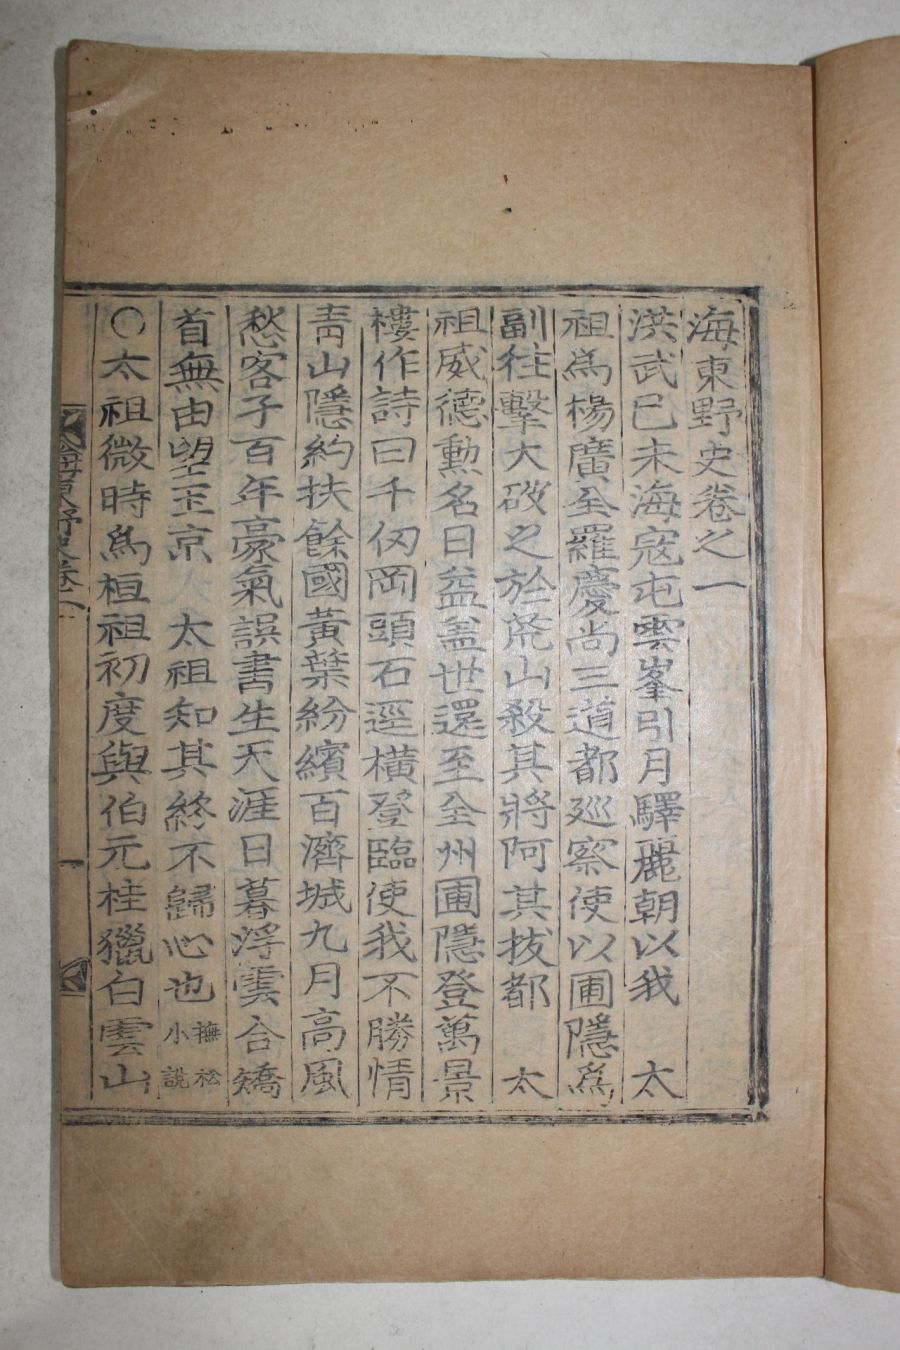 海東野史卷之一
洪武已未海寇屯雲峯引月驛麗朝以我　太
祖爲楊廣全羅慶尚三道都廵察使以圃隱爲
副徃擊大破之於荒山殺其將阿其拔都　太
祖威德勳名日益盖世還至全州圃隱登萬景
樓作詩曰千仞岡頭石逕橫登臨使我不勝情
靑山隱約扶餘國黃葉紛繽百濟城九月高風
愁客子百年豪氣誤書生天涯日暮浮雲合矯
首無由望玉京　太祖知其終不歸心也撫松小說
○太祖微時爲桓祖初度與伯元桂獵白雲山
海東野史卷一